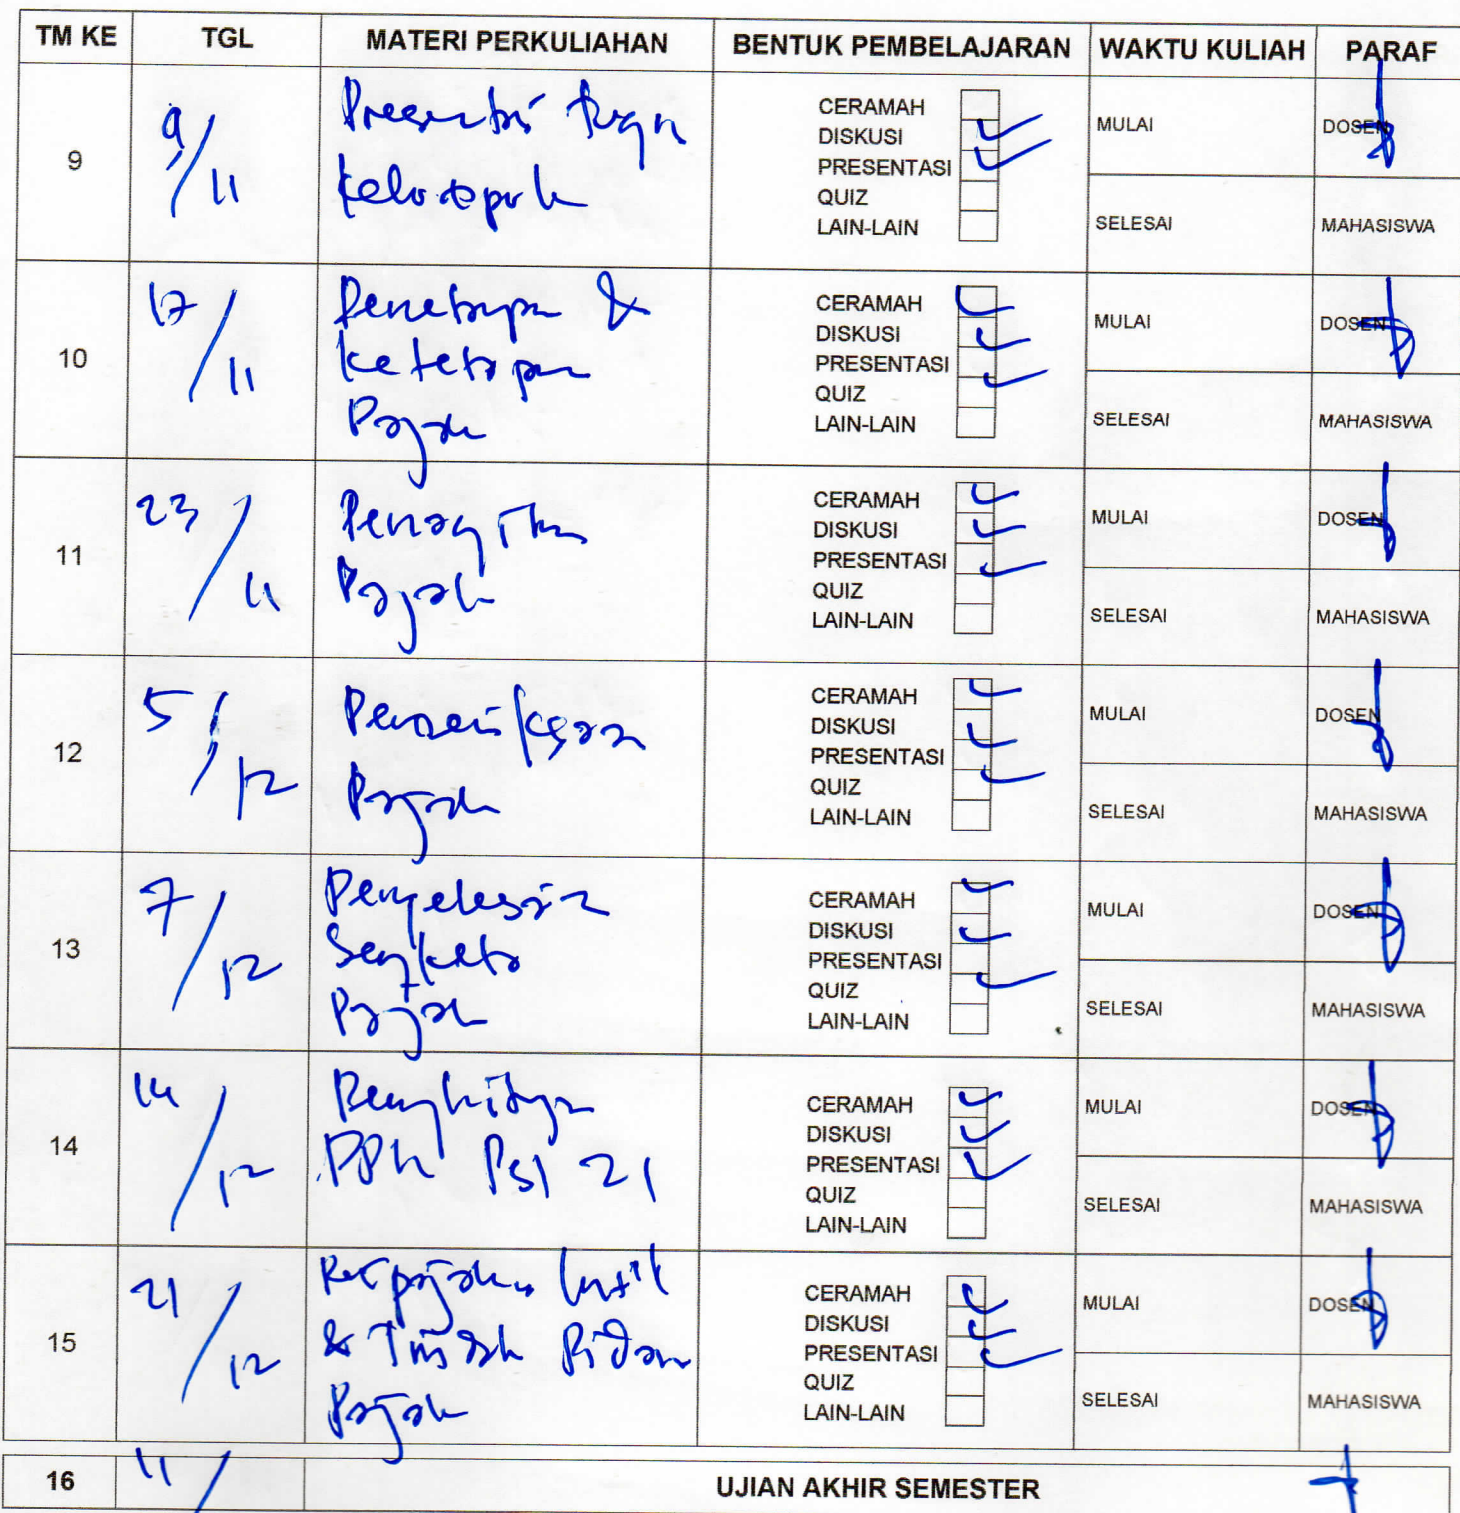 TM KE TGL MATERI PERKULIAHAN BENTUK PEMBELAJARAN WAKTU KULIAH PARAF
9 9/11 Presentasi Tugas
Kelompok
CERAMAH
DISKUSI
PRESENTASI
QUIZ
LAIN-LAIN
MULAI
SELESAI
DOSEN
MAHASISWA
10 17/11 Penetapan &
Ketetapan
Pajak
CERAMAH
DISKUSI
PRESENTASI
QUIZ
LAIN-LAIN
MULAI
SELESAI
DOSEN
MAHASISWA
11 23/11 Penagihan
Pajak
CERAMAH
DISKUSI
PRESENTASI
QUIZ
LAIN-LAIN
MULAI
SELESAI
DOSEN
MAHASISWA
12 5/12 Pemeriksaan
Pajak
CERAMAH
DISKUSI
PRESENTASI
QUIZ
LAIN-LAIN
MULAI
SELESAI
DOSEN
MAHASISWA
13 7/12 Penyelesaian
Sengketa
Pajak
CERAMAH
DISKUSI
PRESENTASI
QUIZ
LAIN-LAIN
MULAI
SELESAI
DOSEN
MAHASISWA
14 14/12
PPh Psl 21
CERAMAH
DISKUSI
PRESENTASI
QUIZ
LAIN-LAIN
MULAI
SELESAI
DOSEN
MAHASISWA
15 21/12
& Tindak Pidana
Pajak
CERAMAH
DISKUSI
PRESENTASI
QUIZ
LAIN-LAIN
MULAI
SELESAI
DOSEN
MAHASISWA
16 11/ UJIAN AKHIR SEMESTER